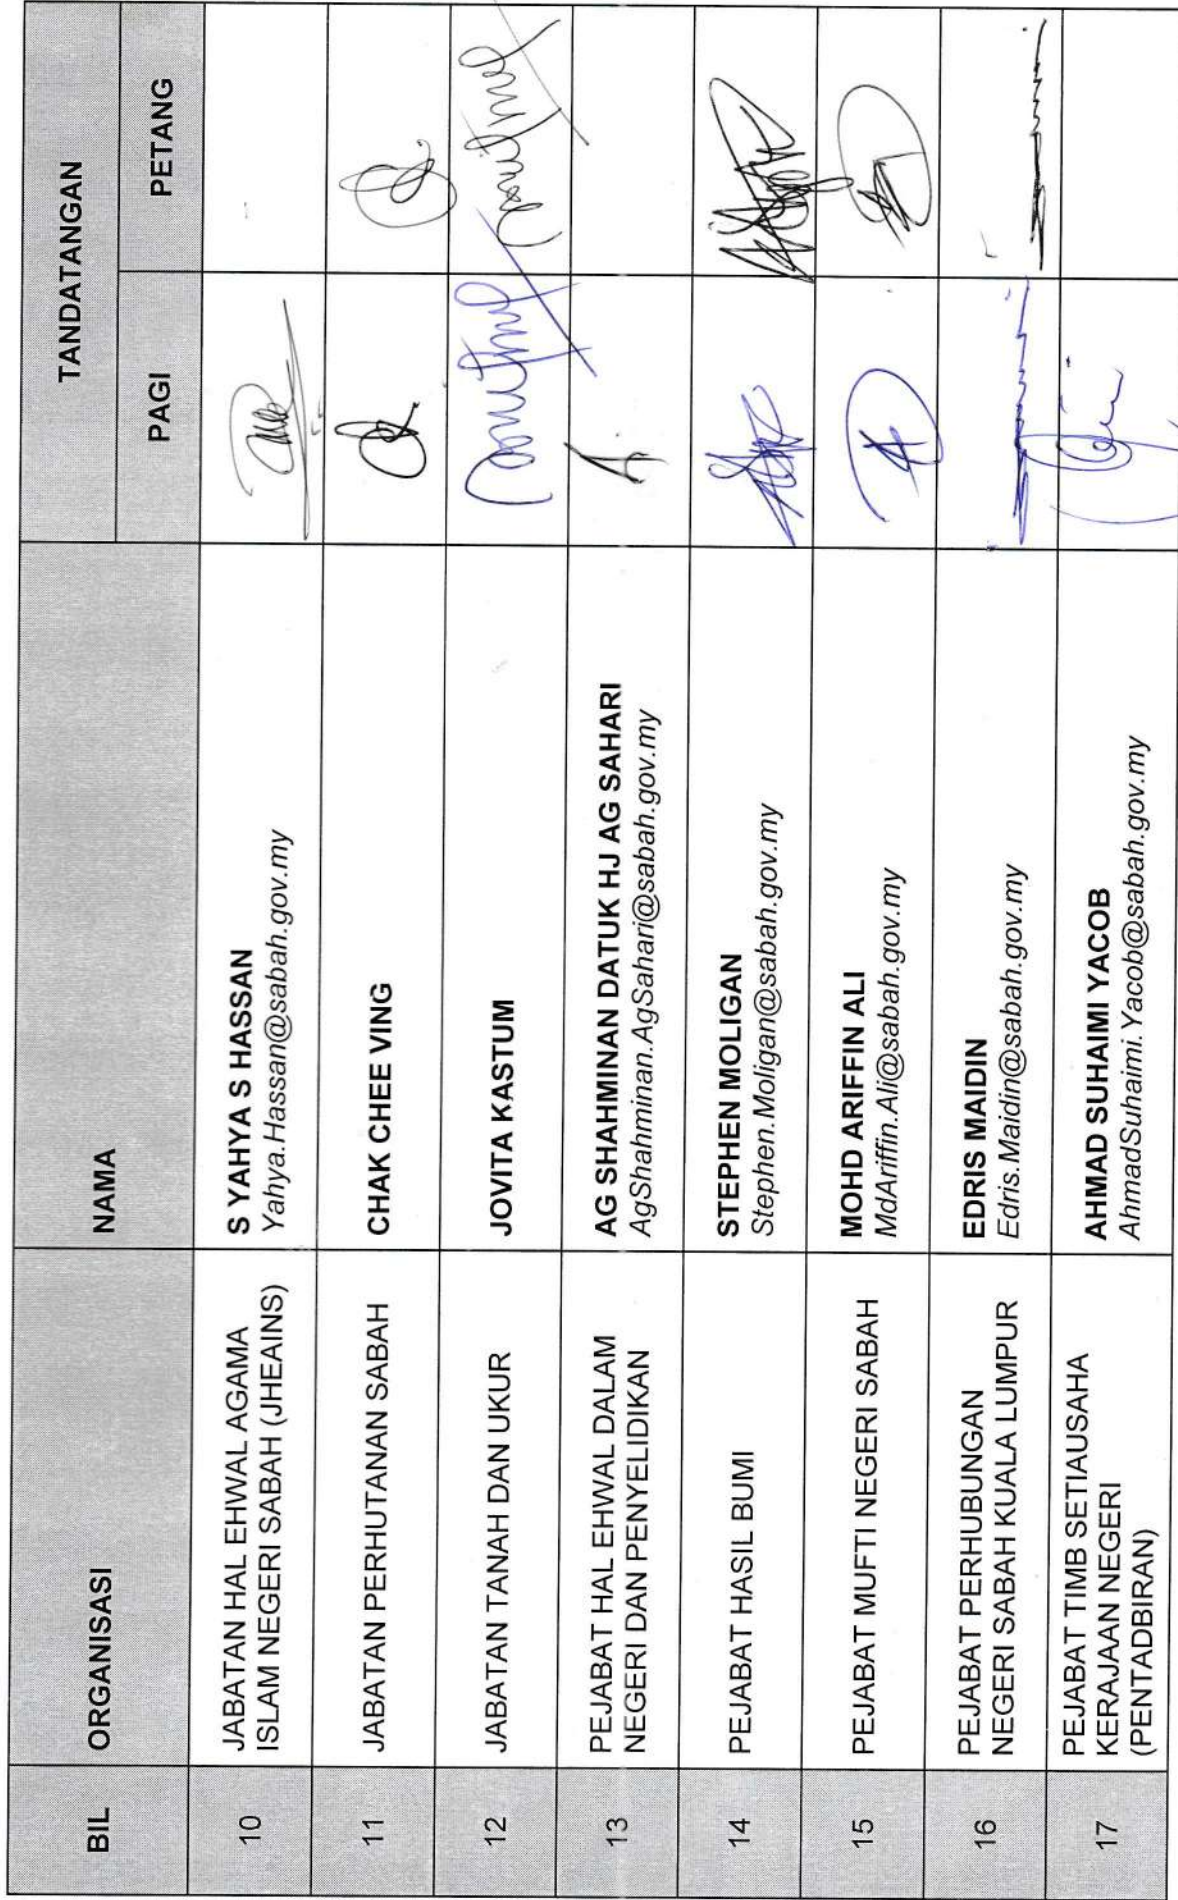 BIL
ORGANISASI
NAMA
TANDATANGAN
PAGI
PETANG
10
JABATAN HAL EHWAL AGAMA
ISLAM NEGERI SABAH (JHEAINS)
S YAHYA S HASSAN
Yahya.Hassan@sabah.gov.my
11
JABATAN PERHUTANAN SABAH
CHAK CHEE VING
12
JABATAN TANAH DAN UKUR
JOVITA KASTUM
13
PEJABAT HAL EHWAL DALAM
NEGERI DAN PENYELIDIKAN
AG SHAHMINAN DATUK HJ AG SAHARI
AgShahminan.AgSahari@sabah.gov.my
14
PEJABAT HASIL BUMI
STEPHEN MOLIGAN
Stephen.Moligan@sabah.gov.my
15
PEJABAT MUFTI NEGERI SABAH
MOHD ARIFFIN ALI
MdAriffin.Ali@sabah.gov.my
16
PEJABAT PERHUBUNGAN
NEGERI SABAH KUALA LUMPUR
EDRIS MAIDIN
Edris.Maidin@sabah.gov.my
17
PEJABAT TIMB SETIAUSAHA
KERAJAAN NEGERI
(PENTADBIRAN)
AHMAD SUHAIMI YACOB
AhmadSuhaimi.Yacob@sabah.gov.my